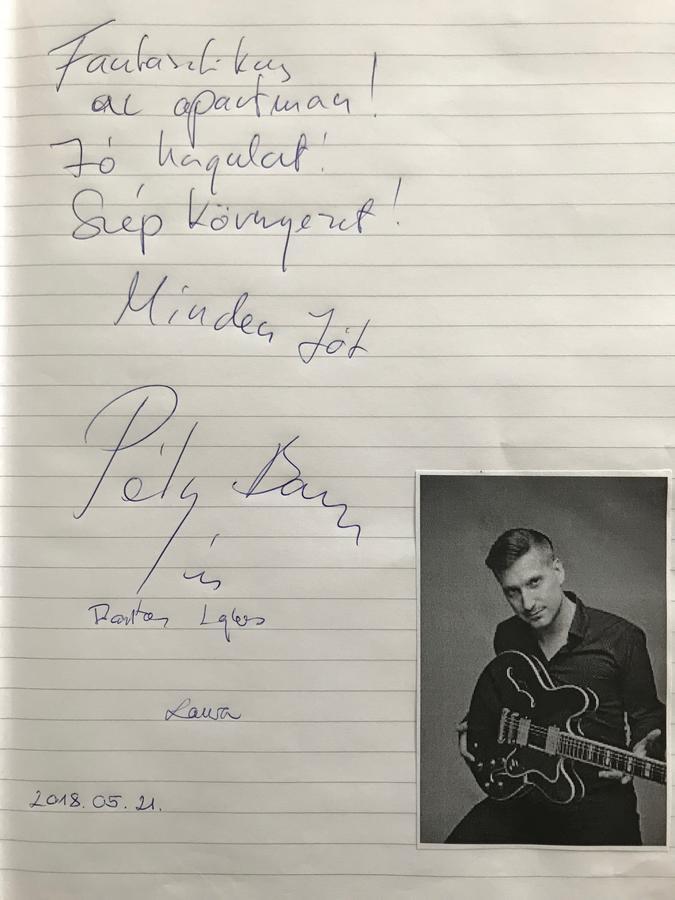 Fantasztikus
az apartman!
Jó hangulat!
Szép környezet!
Minden Jót
Pély Barna
és
Laura
2018. 05. 21.